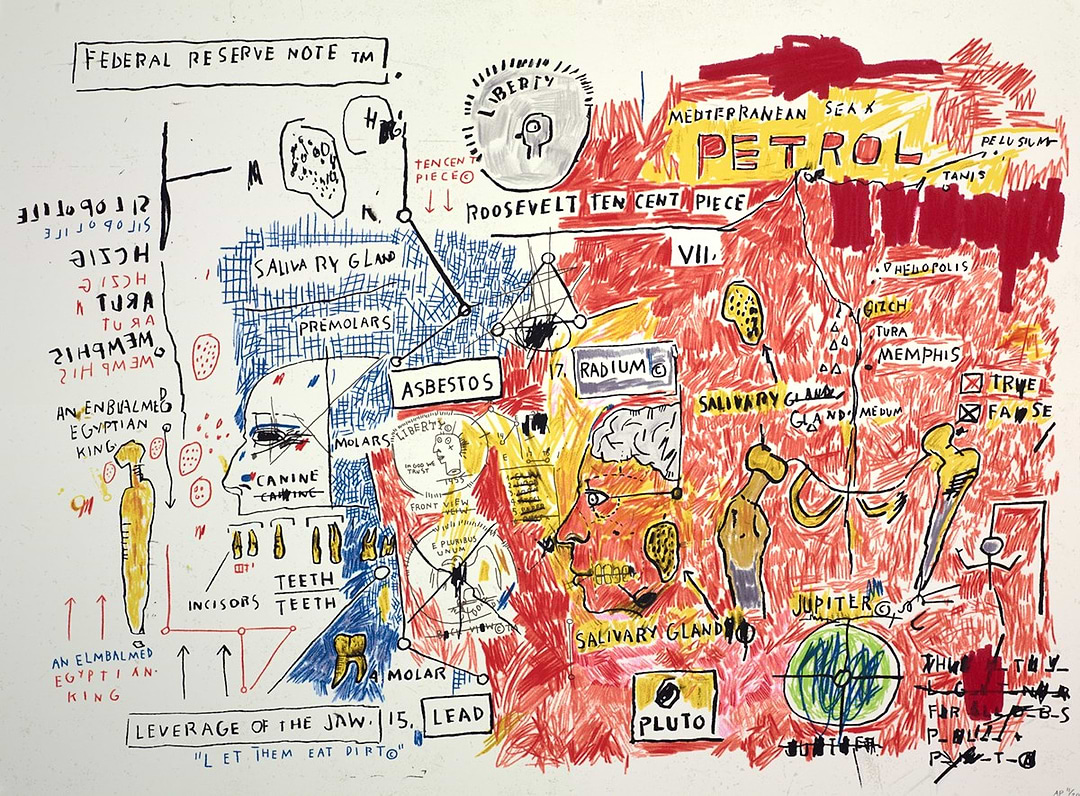 FEDERAL RESERVE NOTE TM
LIBERTY
TEN CENT
PIECE©
ROOSEVELT TEN CENT PIECE
VII.
MEDTERRANEAN SEA
PETROL
PELUSIUM
TANIS
HELOPOLIS
GIZCH
TURA
MEMPHIS
MEDUM
TRUE
FALSE
SILOPOLILE
SILOPOLILE
HCZIG
HCZIG
ARUT
ARUT
MEMPHIS
MEMPHIS
AN ENBLALMED
EGYPTIAN
KING
SALIVARY GLAND
PREMOLARS
ASBESTOS
17.
RADIUM ©
SALIVARY GLAND
GLAND
MOLARS
CANINE
CANINE
LIBERTY©
IN GOD WE
TRUST
1955
FRONT VIEW
VIEW
E PLURIBUS
UNUM
BACK VIEW ©TM
TEETH
INCISORS
TEETH
MOLAR
AN ELMBALMED
EGYPTIAN-
KING
LEVERAGE OF THE JAW.
15.
LEAD
"LET THEM EAT DIRT©"
SALIVARY GLAND
PLUTO
JUPITER©
JUPITER